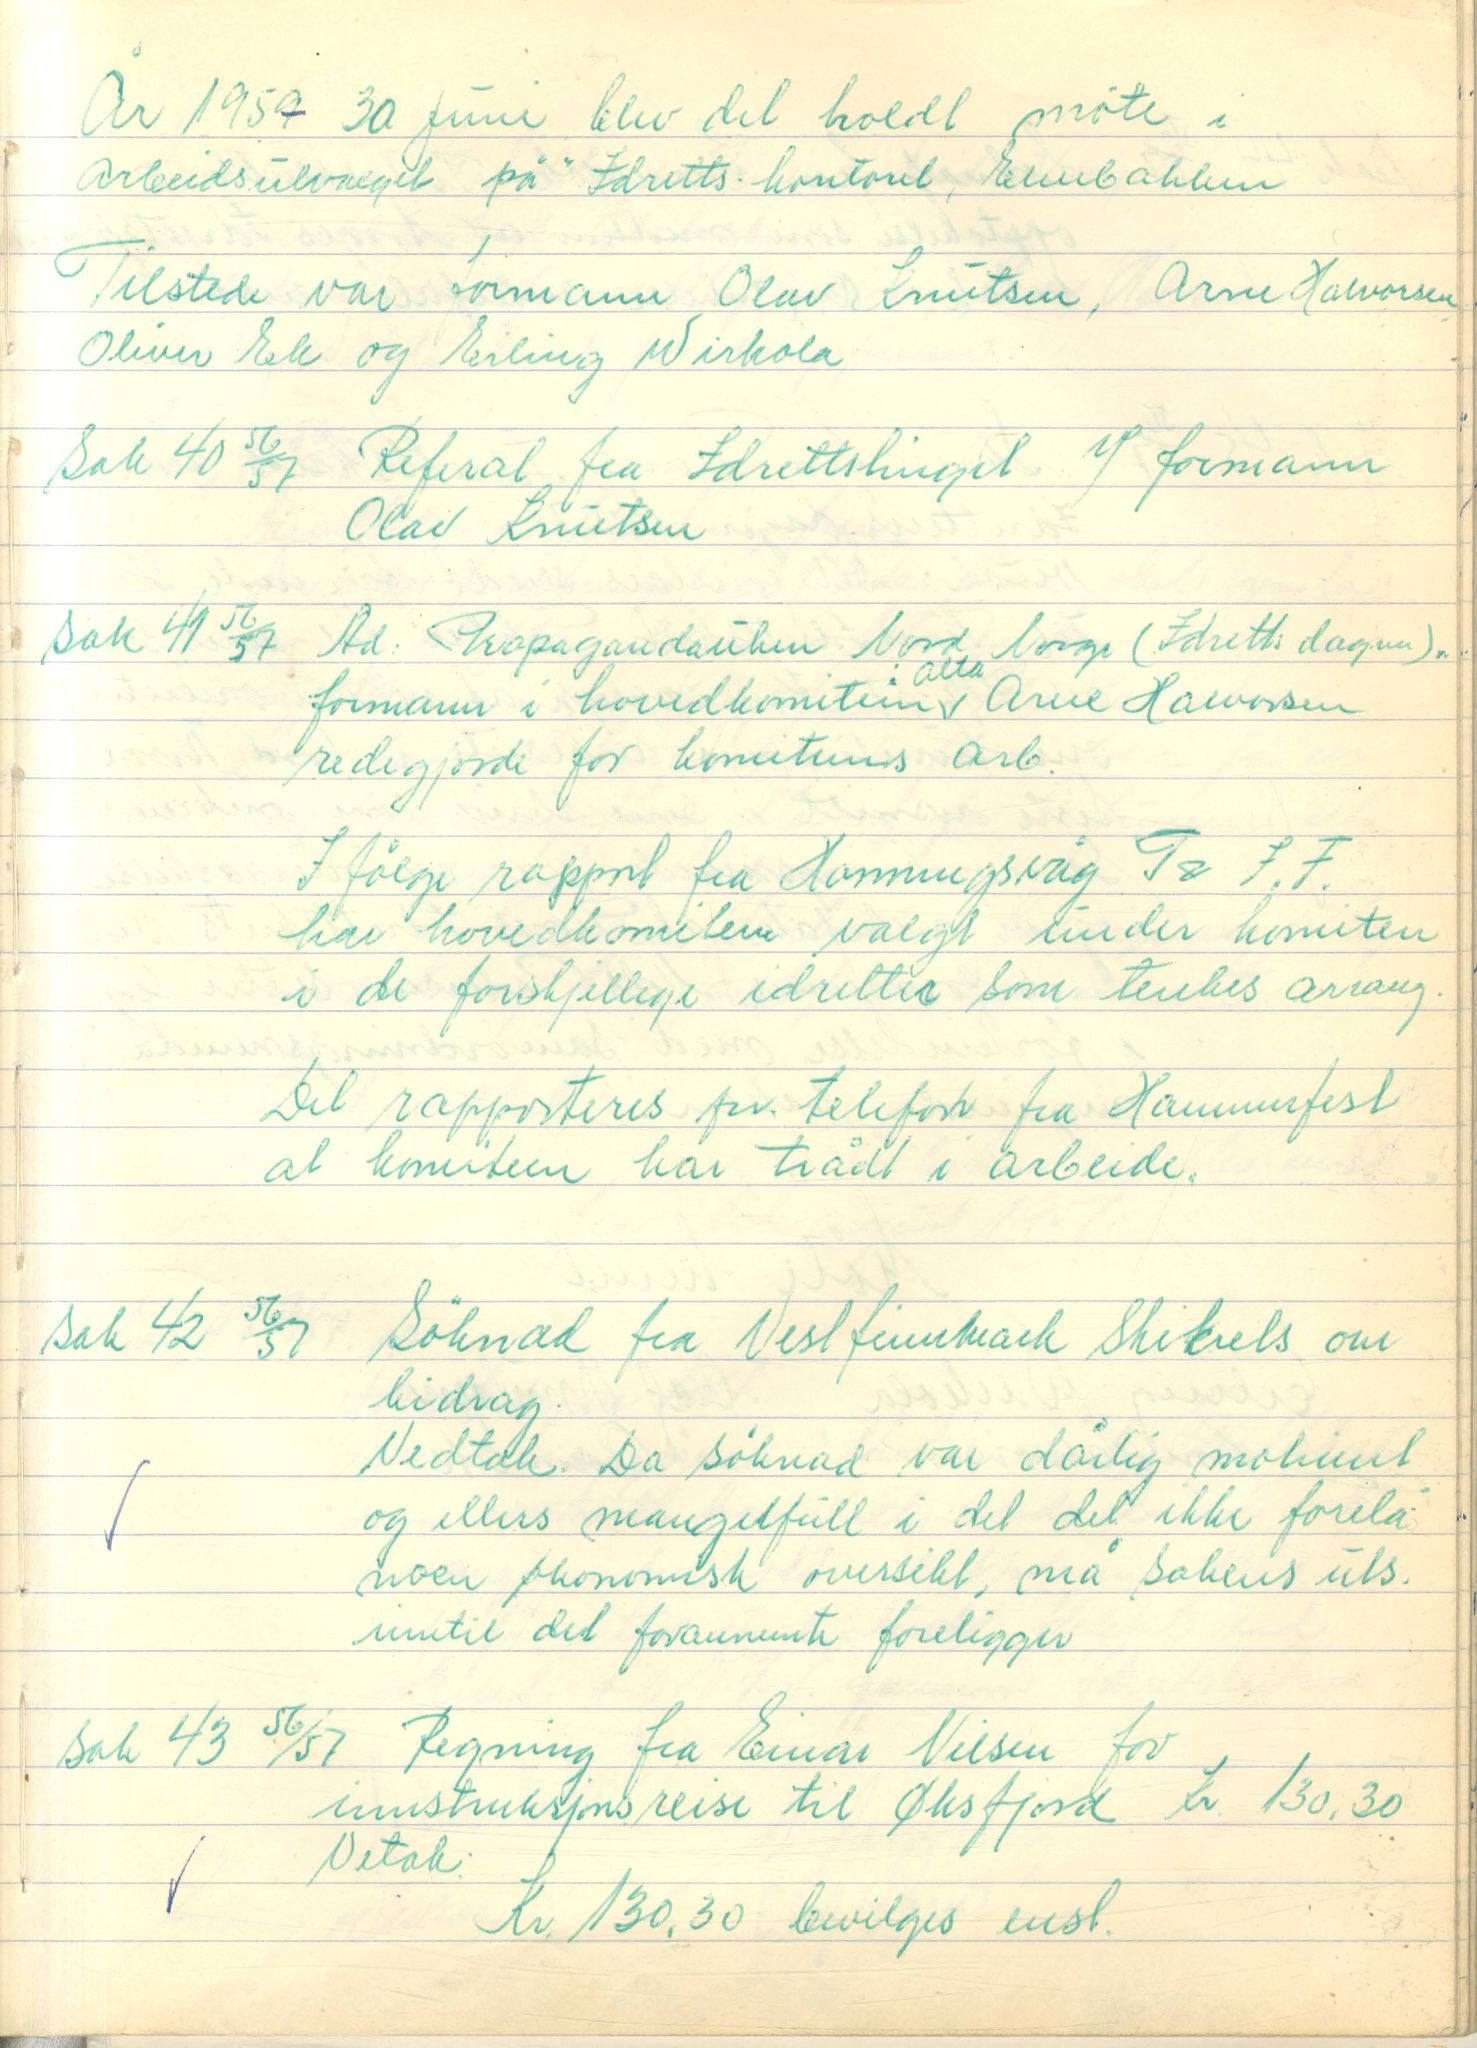 År 1957 30 juni blev det holdt möte i
Arbeidsutvalget på Idretts.kontoret, Elvebakken
Tilstede var formann Olav Knutsen, Arne Halvorsen,
Oliver Eek og Erling Wirkola
Sak 40 56/57 Referat fra Idrettstinget v/ formann
Olav Knutsen
Sak 41 56/57 Ad: Propagandauken Nord Norge (Idretts dagene).
formann i hovedkomiteen i Alta Arne Halvorsen
redegjorde for komiteens arb.
I fölge rapport fra Honningsvåg T& I.F.
har hovedkomiteen valgt under komiteer
i de forskjellige idretter som tenkes arrang.
Det rapporteres pr. telefon fra Hammerfest
at komiteen har trådt i arbeide.
Sak 42 56/57 Söknad fra Vestfinnmark Skikrets om
bidrag.
Vedtak. Da söknad var dårlig motivert
og ellers mangelfull i det det ikke forelå
noen økonomisk oversikt, må sakens uts.
inntil det forannevnte foreligger
Sak 43 56/57 Regning fra Einar Nilsen for
innstruksjonsreise til Øksfjord Kr. 130,30
Vetak:
Kr. 130,30 bevilges enst.